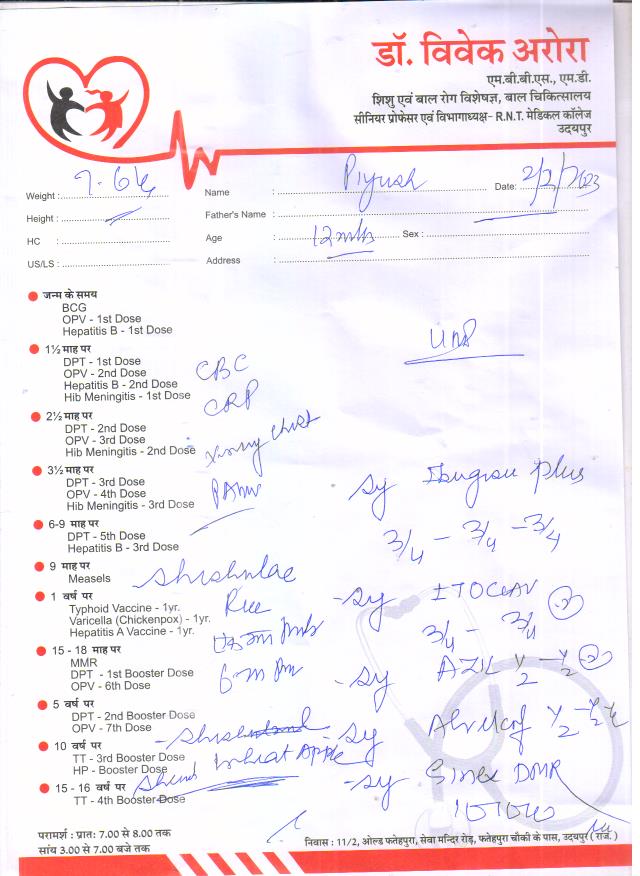 डॉ. विवेक अरोरा
एम.बी.बी.एस., एम.डी.
शिशु एवं बाल रोग विशेषज्ञ, बाल चिकित्सालय
सीनियर प्रोफेसर एवं विभागाध्यक्ष- R.N.T. मेडिकल कॉलेज
उदयपुर
Weight :
Name : Piyush Date: 2/2/2023
Height :
Father's Name :
HC :
Age : 12 mths Sex :
US/LS :
Address :
जन्म के समय
BCG
OPV - 1st Dose
Hepatitis B - 1st Dose
1½ माह पर
DPT - 1st Dose
OPV - 2nd Dose
Hepatitis B - 2nd Dose
Hib Meningitis - 1st Dose
CBC
CRP
2½ माह पर
DPT - 2nd Dose
OPV - 3rd Dose
Hib Meningitis - 2nd Dose
Xray chest
3½ माह पर
DPT - 3rd Dose
OPV - 4th Dose
Hib Meningitis - 3rd Dose
sy plus
3/4 - 3/4 - 3/4
6-9 माह पर
DPT - 5th Dose
Hepatitis B - 3rd Dose
9 माह पर
Measels
1 वर्ष पर
Typhoid Vaccine - 1yr.
Varicella (Chickenpox) - 1yr.
Hepatitis A Vaccine - 1yr.
Rice
- sy ITOCLAV
3/4 - 3/4
15 - 18 माह पर
MMR
DPT - 1st Booster Dose
OPV - 6th Dose
- sy ½ - ½
5 वर्ष पर
DPT - 2nd Booster Dose
OPV - 7th Dose
- sy ½ - ½ - ½
10 वर्ष पर
TT - 3rd Booster Dose
HP - Booster Dose
Wheat Apple
- sy DMR
15 - 16 वर्ष पर
TT - 4th Booster Dose
परामर्श : प्रात: 7.00 से 8.00 तक
सांय 3.00 से 7.00 बजे तक
निवास : 11/2, ओल्ड फतेहपुरा, सेवा मन्दिर रोड़, फतेहपुरा चौकी के पास, उदयपुर ( राज. )